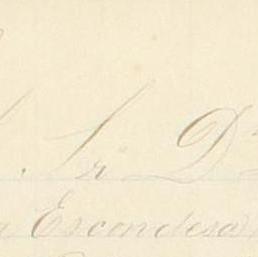 . Sr D
a Escondesa